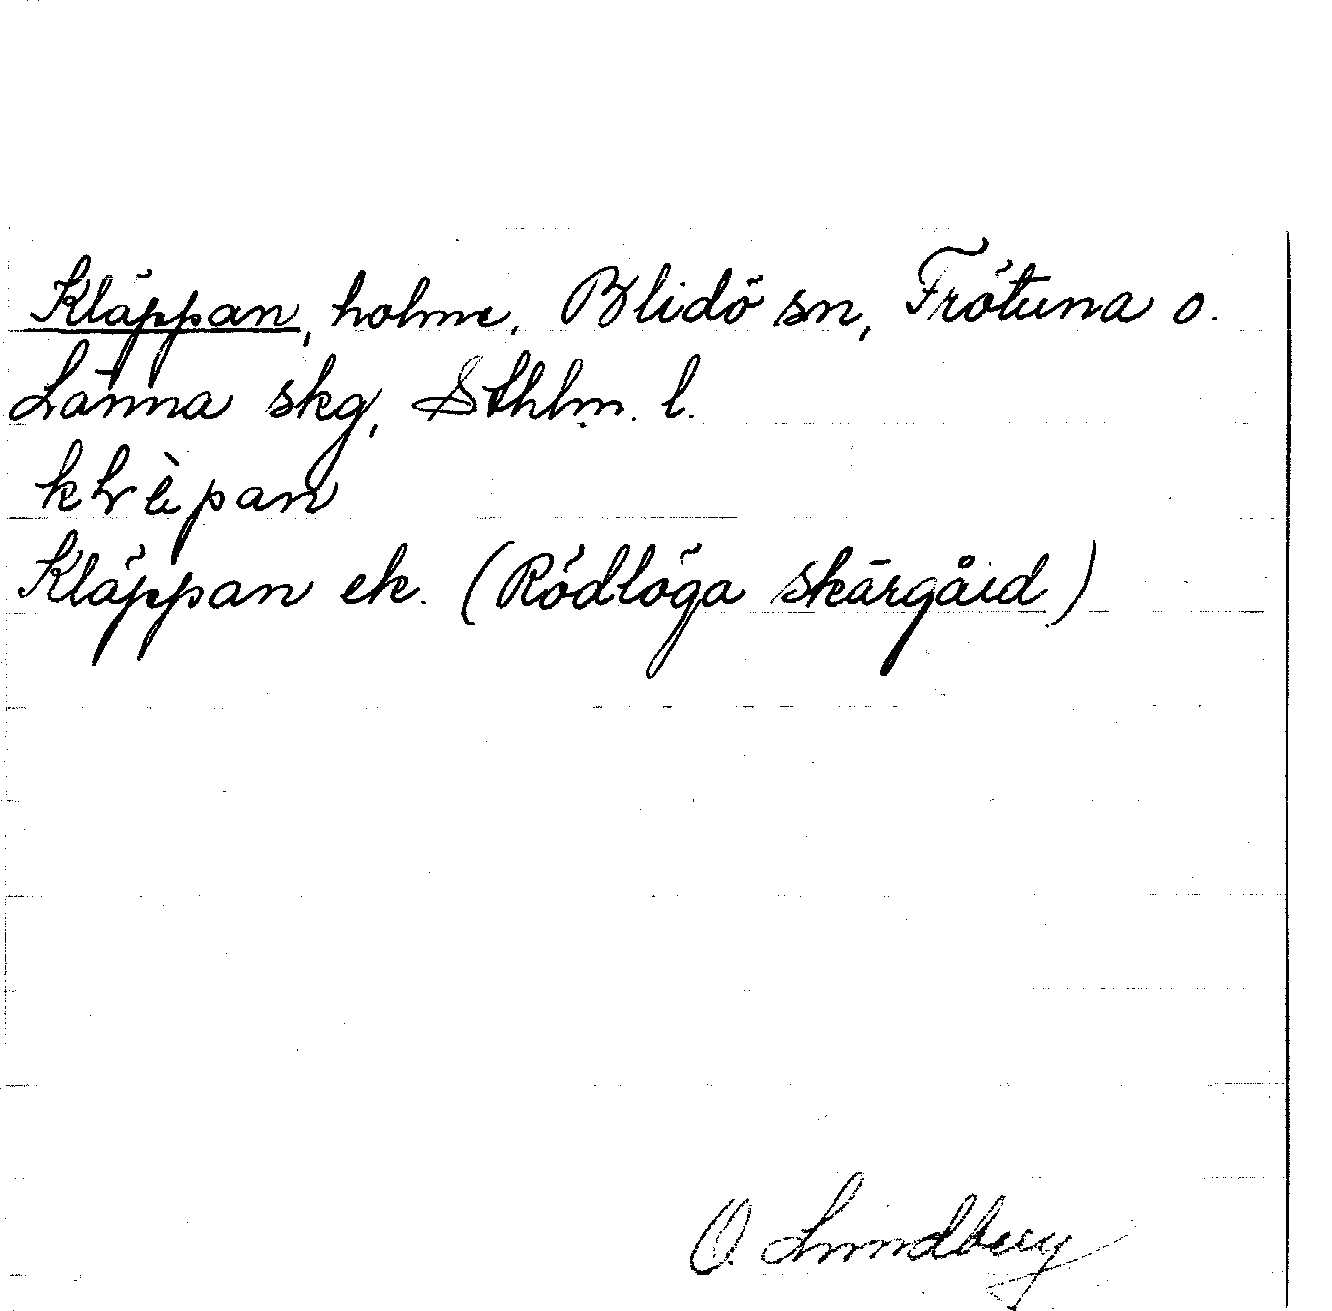 Kläppan, holme, Blidö sn, Frötuna o.
Länna skg, Sthlm. l.
Kläppan ek. (Rödlöga skärgård)
O. Lundberg